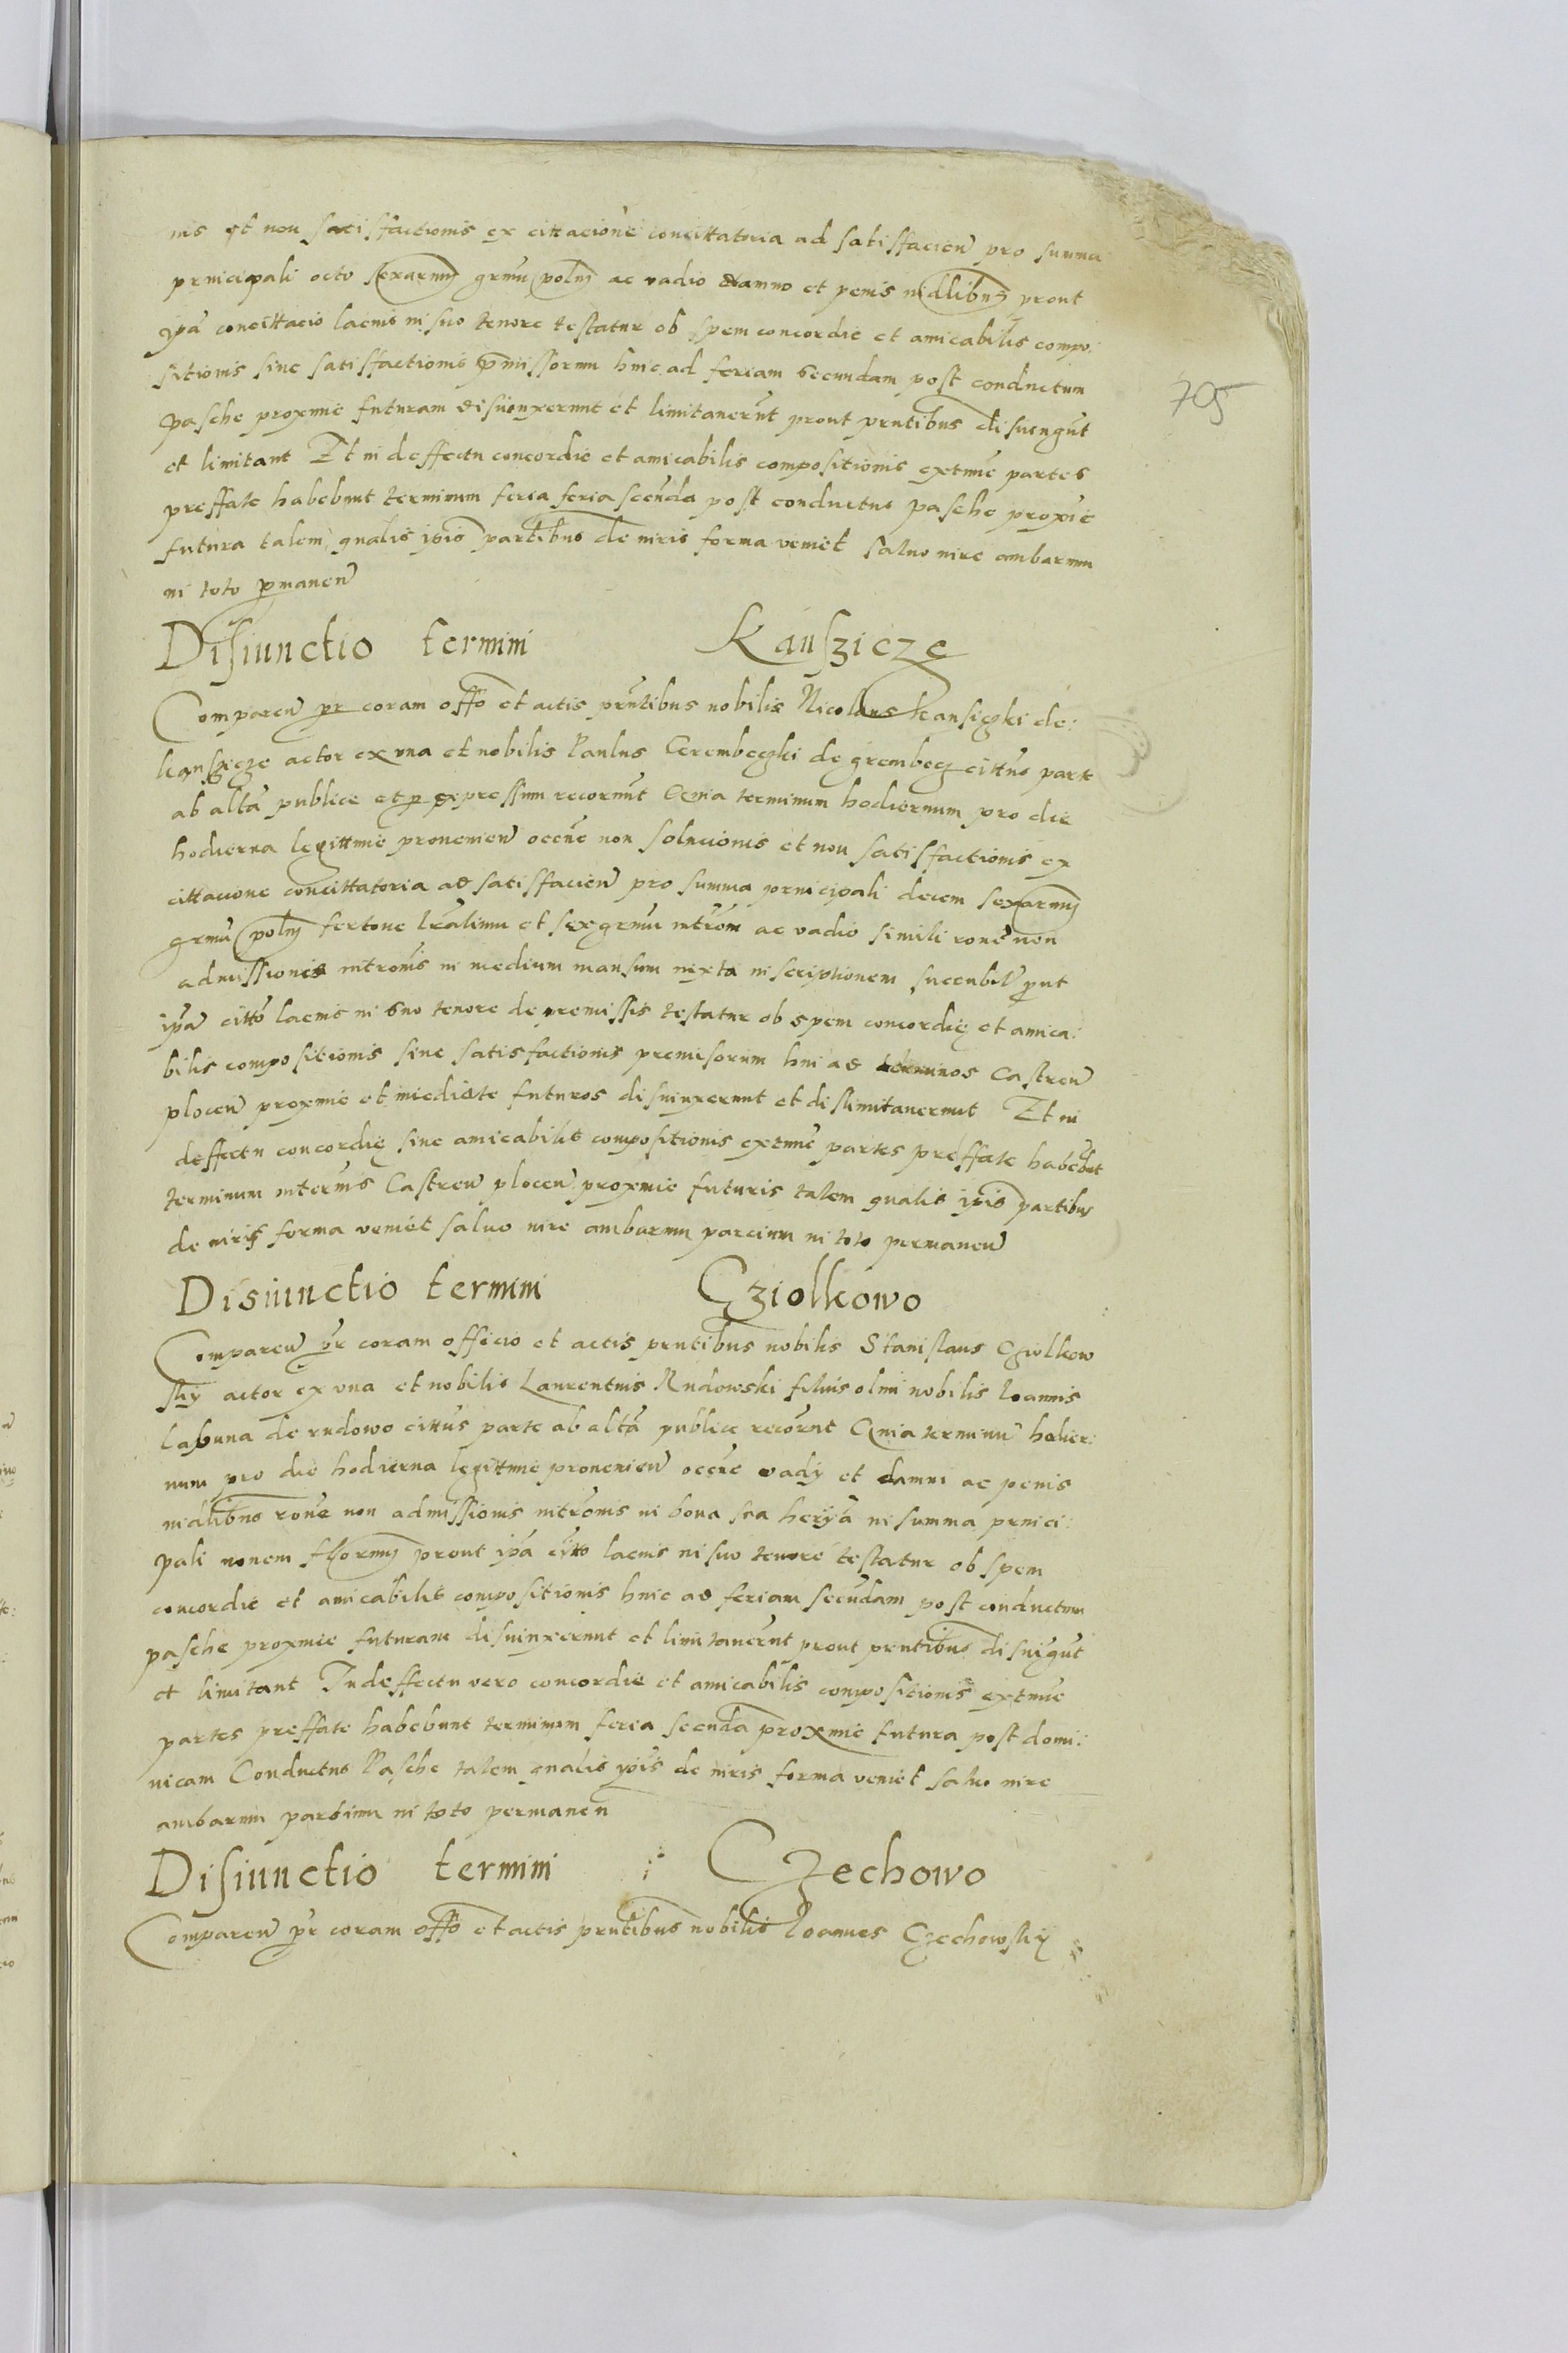 nis et non satisfactionis ex cittacione concittatoria ad satisfacien pro summa
principali octo sexarum grnu polnj ac vadio damno et penis iudlibus prout
ipa concittacio lacius in suo tenore testatur ob spem concordie et amicabilis compo:
sitionis sine satisfactionis pmissorum huic ad feriam secundam post conductum
pasche proxime futuram disiunxerunt et limitauerunt prout prntibus disiungut
et limitant Et in deffectu concordie et amicabilis compositionis extunc partes
preffate habebunt terminum feria feria scenda post conductus pasche proxie
futura talem qualis ipis partibus de iuris forma veniet saluo iure ambarum
in toto pmanen
705
Disiunctio termini Kanszicze
Comparen pr coram offo et actis prntibus nobilis Nicolaus kansiczki de:
kanszicze actor ex vna et nobilis Paulus Grembeczki de grembecz cittus parte
ab alta publice et p expressum recorunt Quia terminum hodiernum pro die
hodierna legittime prouenien occne non solucionis et non satisfactionis ex
cittacione concittatoria ad satisfacien pro summa principali decem sexarum
grnu polnj fertone lralium et sex grnu introm ac vadio simili rone non
admissionis intronis in medium mansum iuxta inscriptionem succubit put
ipa citto lacius in suo tenore de premissis testatur ob spem concordie et amica:
bilis compositionis sine satisfactionis premisorum hui ad terminos Castren
plocen proxime et inediate futuros disiunxerunt et dislimitauerunt Et in
deffectu concordie sine amicabilis compositionis extunc partes preffate habebut
terminum interius Castren plocen proxime futuris talem qualis ipis partibus
de iuris forma veniet saluo iure ambarum parcium in toto permanen
Disiunctio termini Cziolkowo
Comparen pr coram officio et actis prntibus nobilis Stanislaus Cziolkow
sky actor ex vna et nobilis Laurentius Rudowski filius olmi nobilis Ioannis
Labuna de rudowo cittus parte ab alta publice recornt Quia terminu hodier:
num pro die hodierna legittime prouenien occne vady et damni ac penis
iudlibus rone non admissionis intronis in bona sua heriya in summa princi:
pali nonem florenj prout ipa citto lacius in suo tenore testatur ob spem
concordie et amicabilis compositionis huic ad feriam secundam post conductum
pasche proxime futuram disiunxerunt et limitauerunt prout prntibus disiugut
et limitant In deffectu vero concordie et amicabilis compositionis extunc
partes preffate habebunt terminum feria secunda proxime futura post domi:
nicam Conductus Pasche talem qualis ipis de iuris forma veniet saluo iure
ambarum partium in toto permanen
Disiunctio termini Czechowo
Comparen pr coram offo et actis prntibus nobilis Ioannes Czechowsky